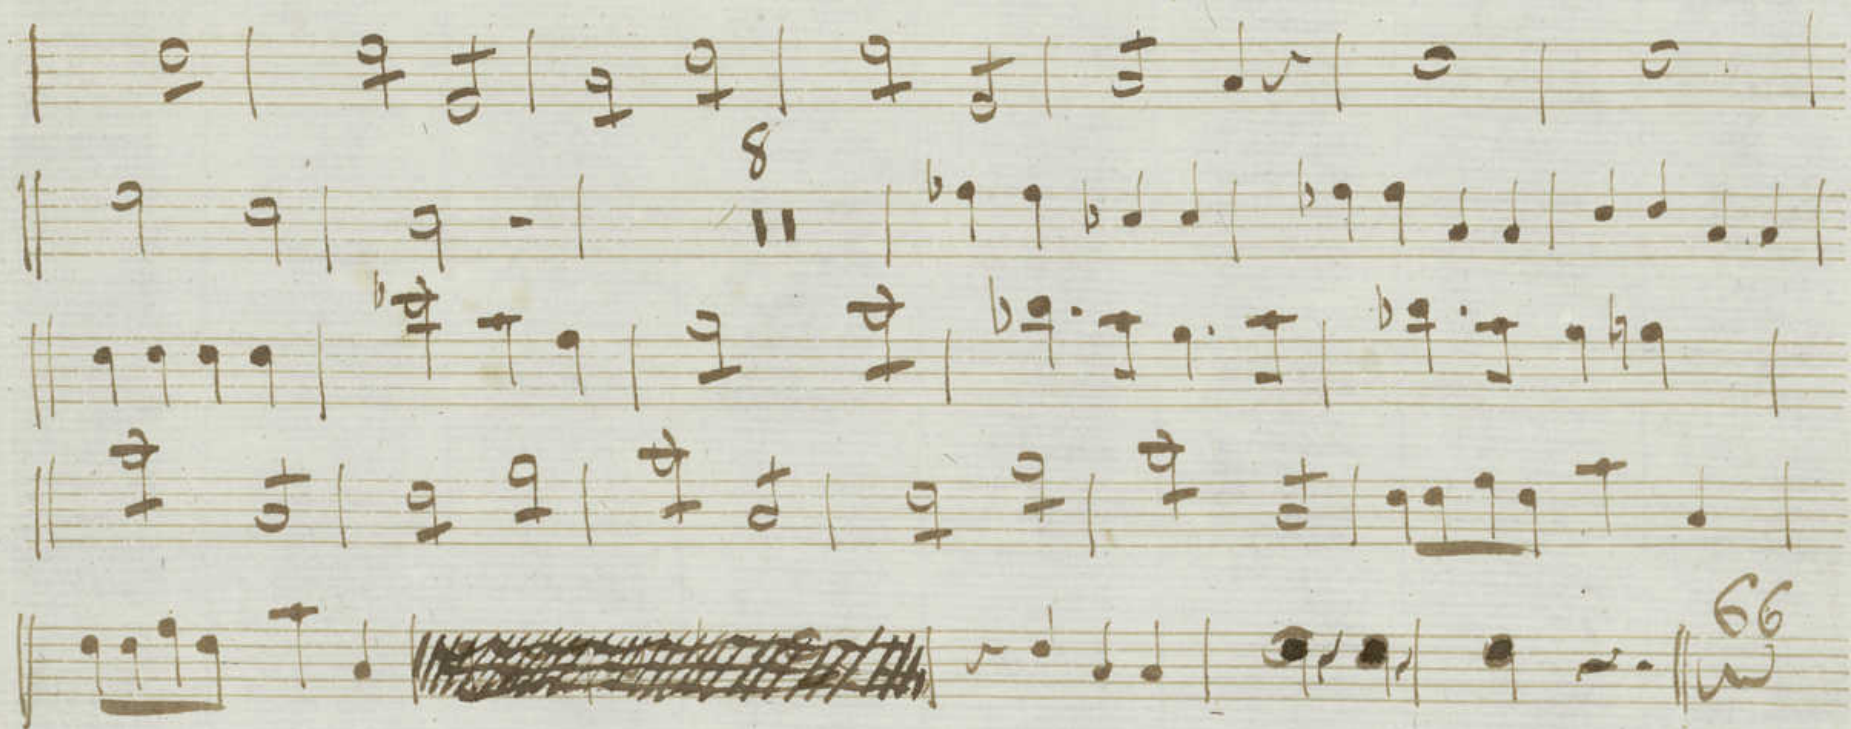 8
66